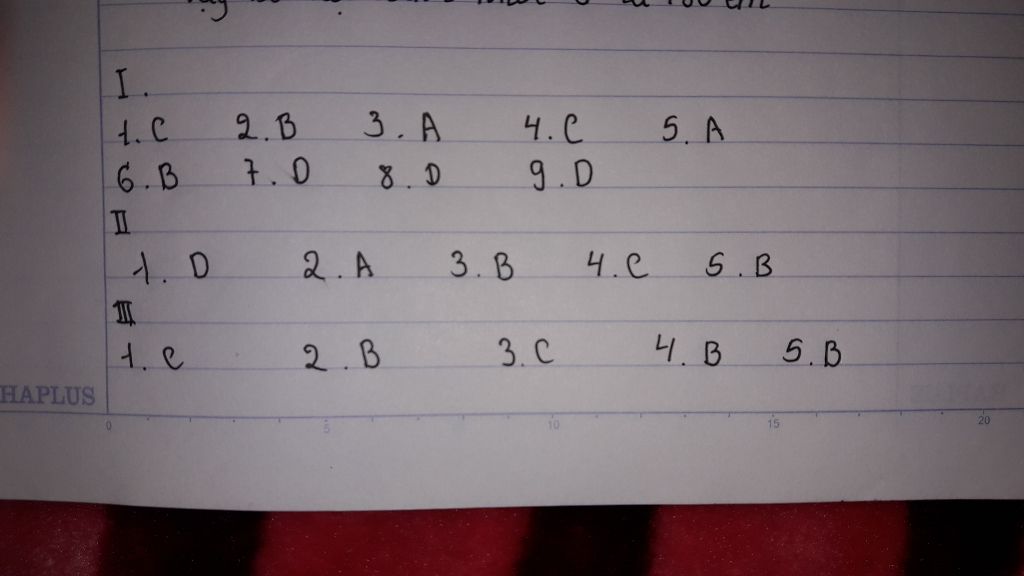 I.
1. C 2. B 3. A 4. C 5. A
6. B 7. D 8. D 9. D
II
1. D 2. A 3. B 4. C 5. B
III
1. C 2. B 3. C 4. B 5. B
HAPLUS
0 5 10 15 20